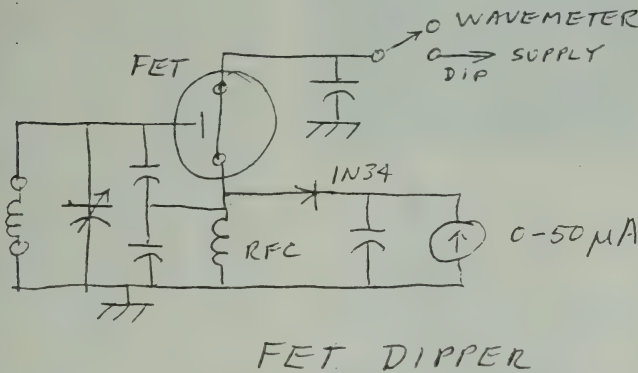 WAVEMETER
SUPPLY
DIP
FET
1N34
RFC
0-50 μA
FET DIPPER